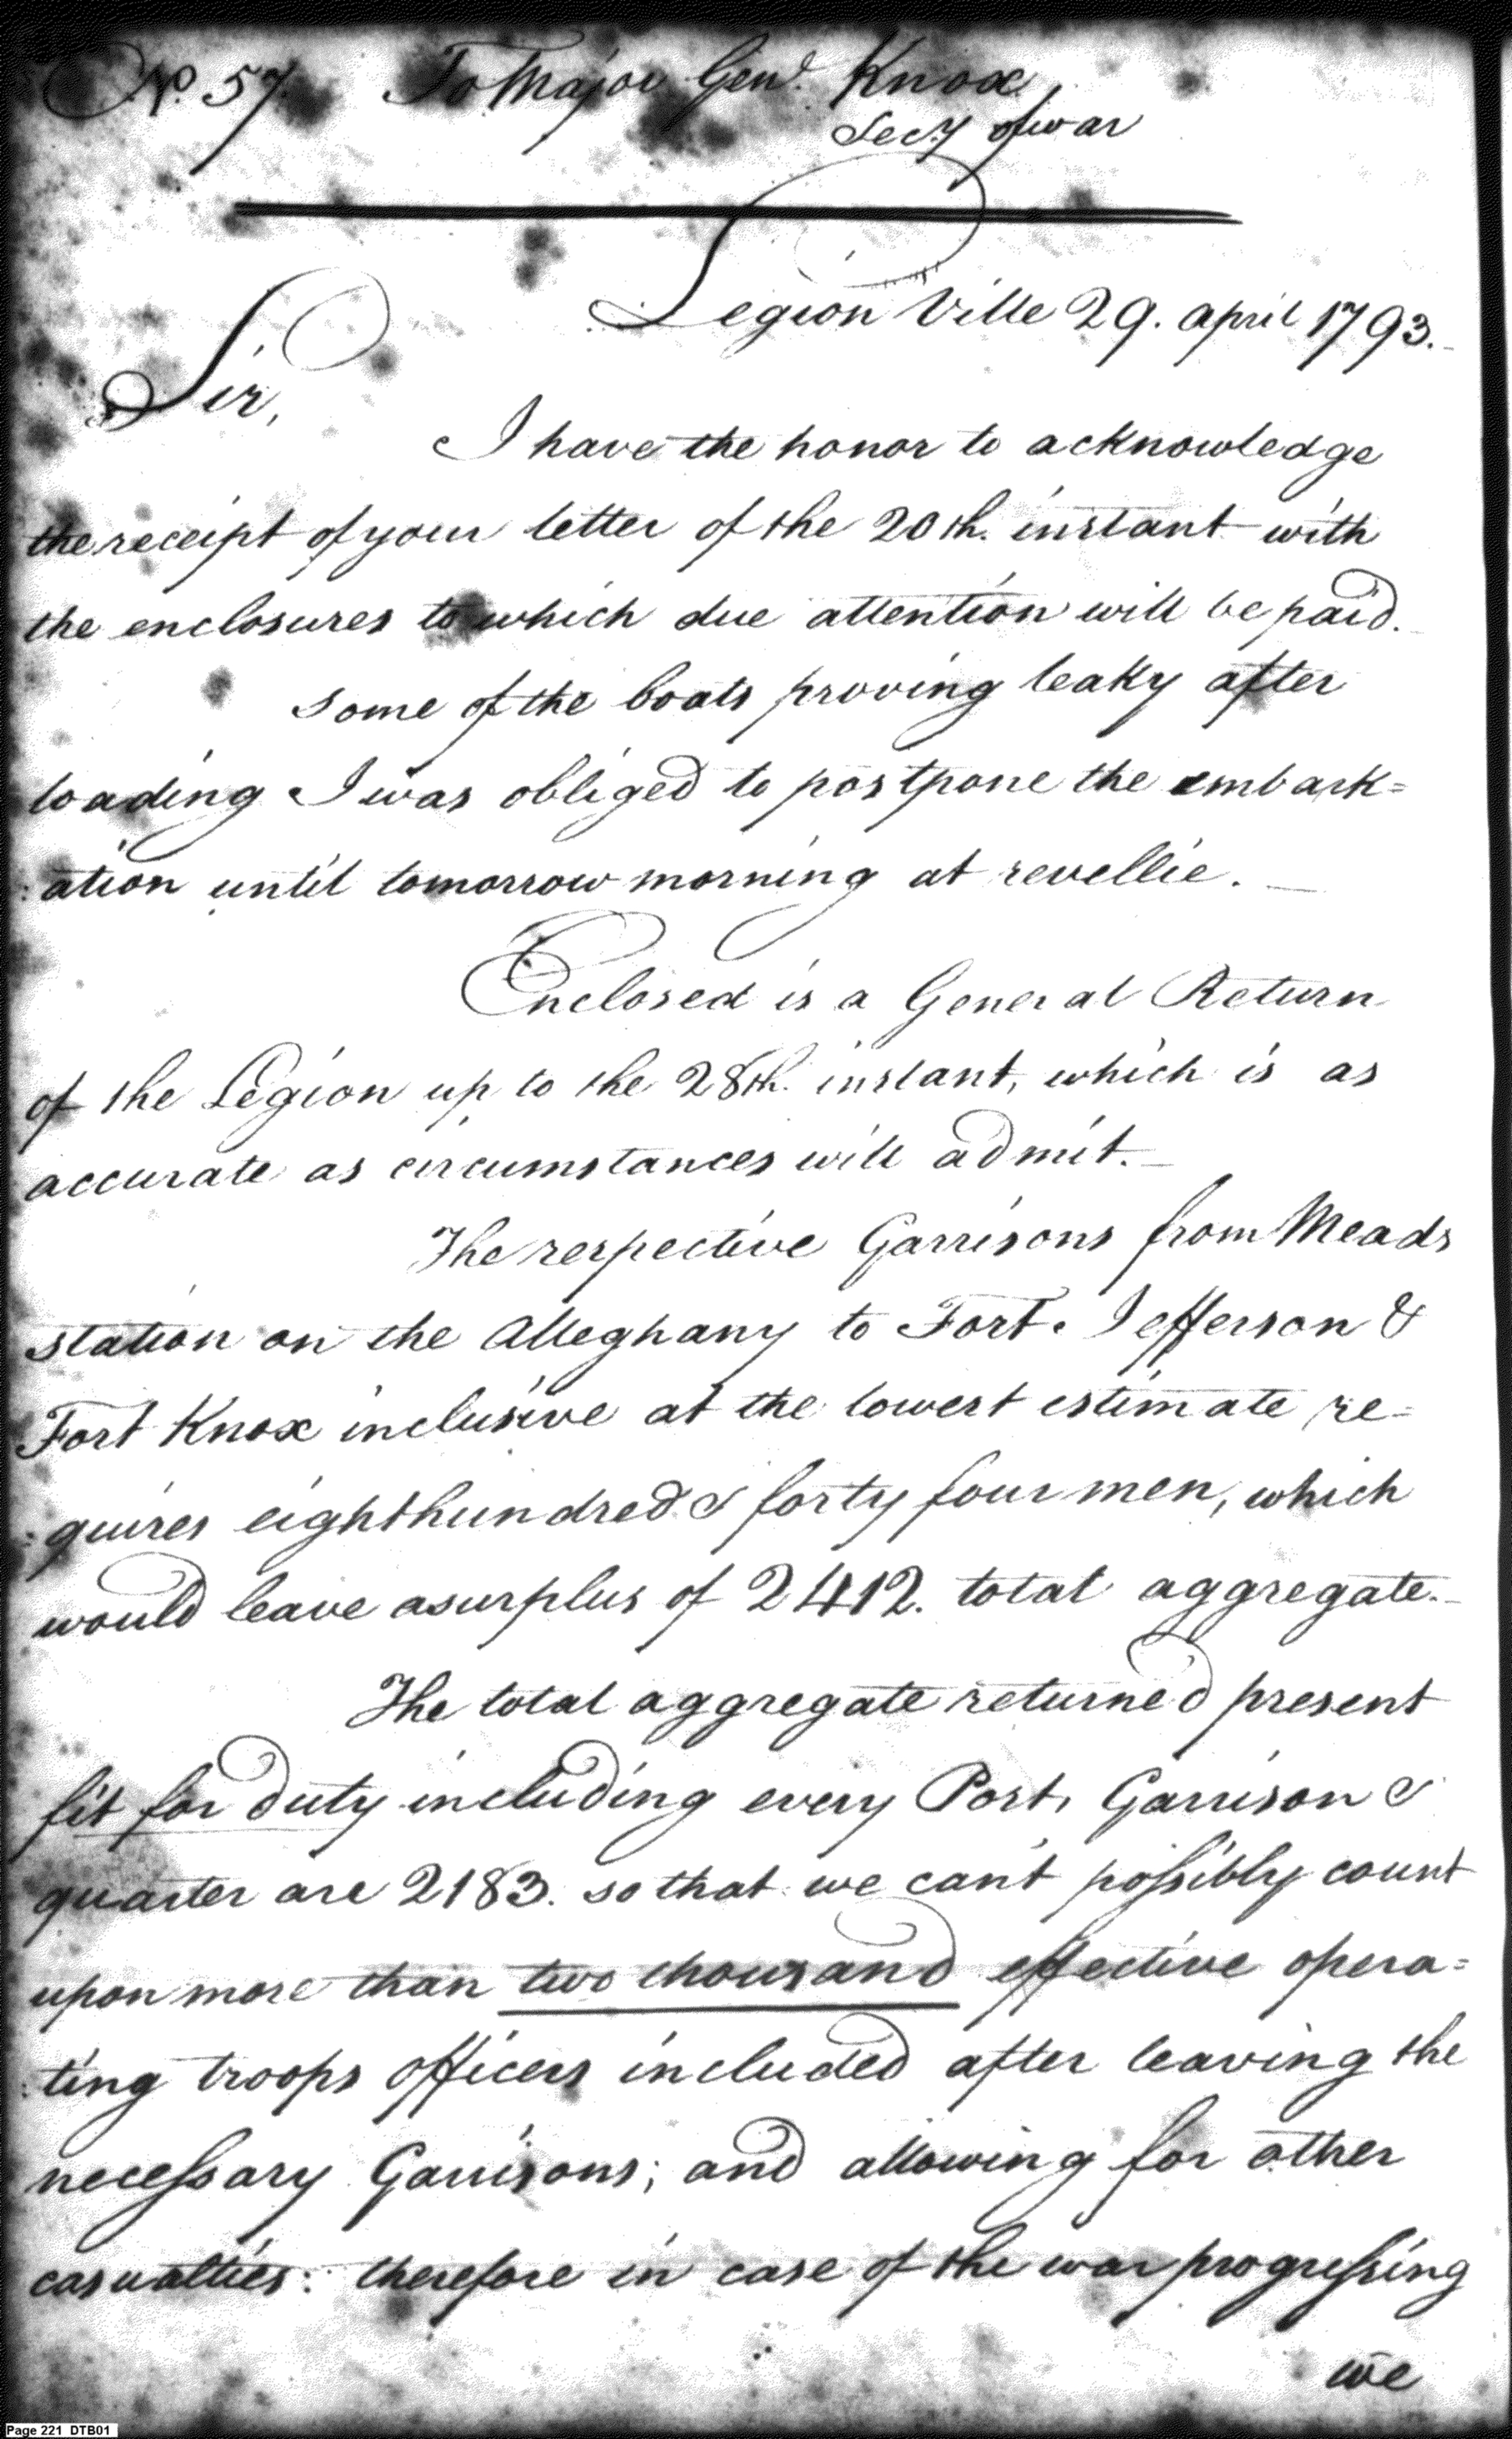 No. 57. To Major Genl. Knox
Secy of war
Legion Ville 29. april 1793.
Sir,
I have the honor to acknowledge
the receipt of your letter of the 20th. instant with
the enclosures to which due attention will be paid.
Some of the boats proving leaky after
loading I was obliged to postpone the embark=
:ation until tomorrow morning at revellie.
Enclosed is a General Return
of the Legion up to the 28th. instant, which is as
accurate as circumstances will admit.
The respective Garrisons from Meads
station on the Alleghany to Fort. Jefferson &
Fort Knox inclusive at the lowest estimate re=
:quires eighthundred & forty four men, which
would leave a surplus of 2412. total aggregate.
The total aggregate returned present
fit for duty including every Post, Garrison &
quarter are 2183. so that we can't possibly count
upon more than two thousand effective opera=
:ting troops officers included after leaving the
necessary Garrisons; and allowing for other
casualties: therefore in case of the war progressing
we
Page 221 DTB01